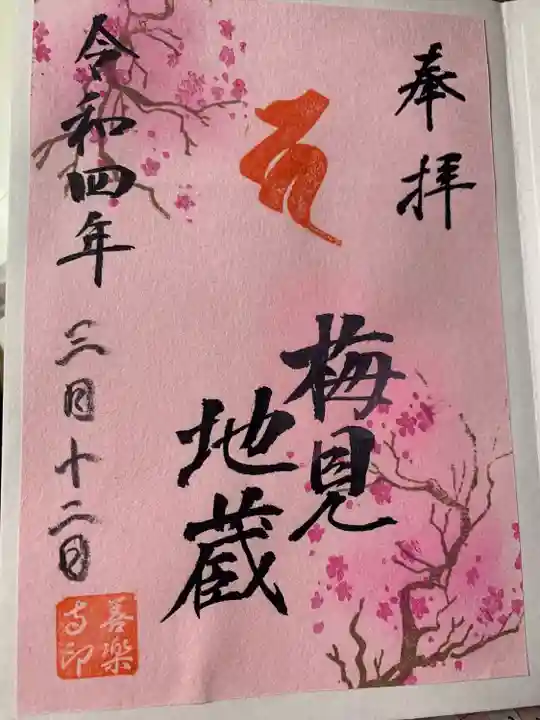 奉拝
梅見
地蔵
令和四年 三月十二日
善樂
寺印